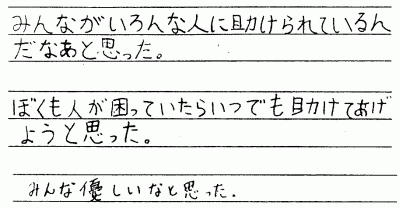 みんながいろんな人に助けられているん
だなあと思った。
ぼくも人が困っていたらいつでも助けてあげ
ようと思った。
みんな優しいなと思った.